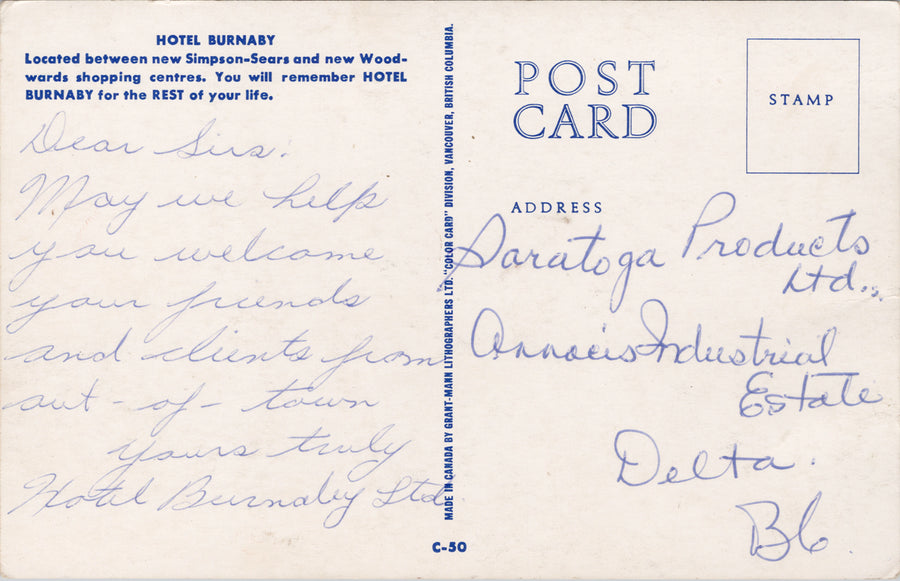 HOTEL BURNABY
Located between new Simpson-Sears and new Wood-
wards shopping centres. You will remember HOTEL
BURNABY for the REST of your life.
Dear Sirs:
May we help
you welcome
your friends
and clients from
out-of-town
yours truly
Hotel Burnaby Ltd
MADE IN CANADA BY GRANT-MANN LITHOGRAPHERS LTD. "COLOR CARD" DIVISION, VANCOUVER, BRITISH COLUMBIA.
C-50
POST
CARD
STAMP
ADDRESS
Saratoga Products
Ltd.,
Annacis Industrial
Estate
Delta.
BC